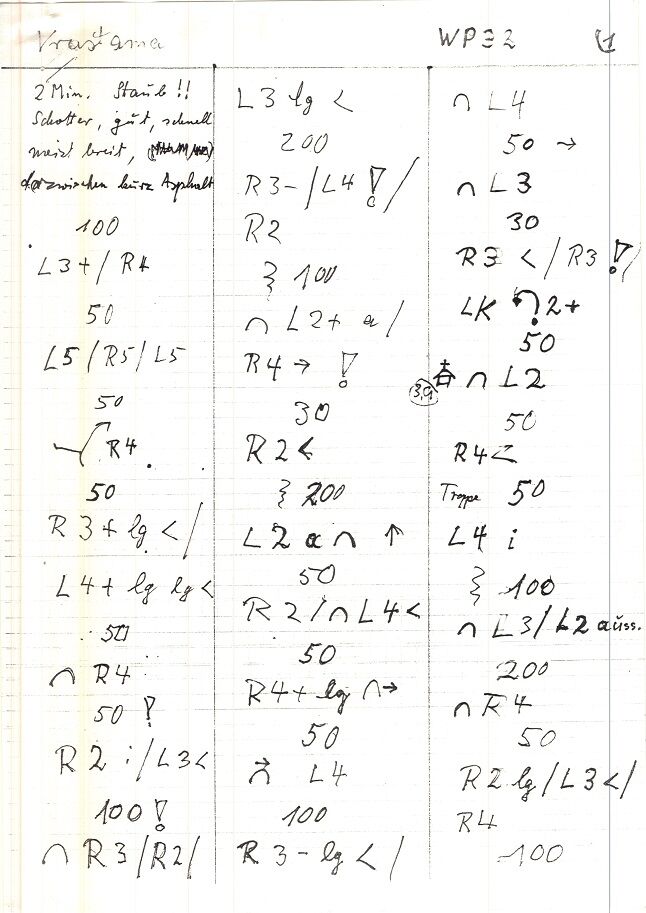 Vraštama WP32 1
2 Min. Staub!!
Schotter, gut, schnell
meist breit,
dazwischen kurz Asphalt
100
L3+/R4
50
L5/R5/L5
50
R4
50
R3+ lg </
L4+ lg lg <
50
∩ R4
50 !
R2 i/L3<
100 !
∩ R3/R2/
L3 lg <
200
R3-/L4 !/
R2
100
∩ L2+ a/
R4 → !
30
R2 <
200
L2 a ∩ ↑
50
R2/∩ L4 <
50
R4+ lg ∩→
50
→ ∩ L4
100
R3- lg </
∩ L4
50 →
∩ L3
30
R3 </R3 !/
LK 2+
50
3,9 ∩ L2
50
R4<
Treppe 50
L4 i
100
∩ L3/L2 auss.
200
∩ R4
50
R2 lg/L3</
R4
100